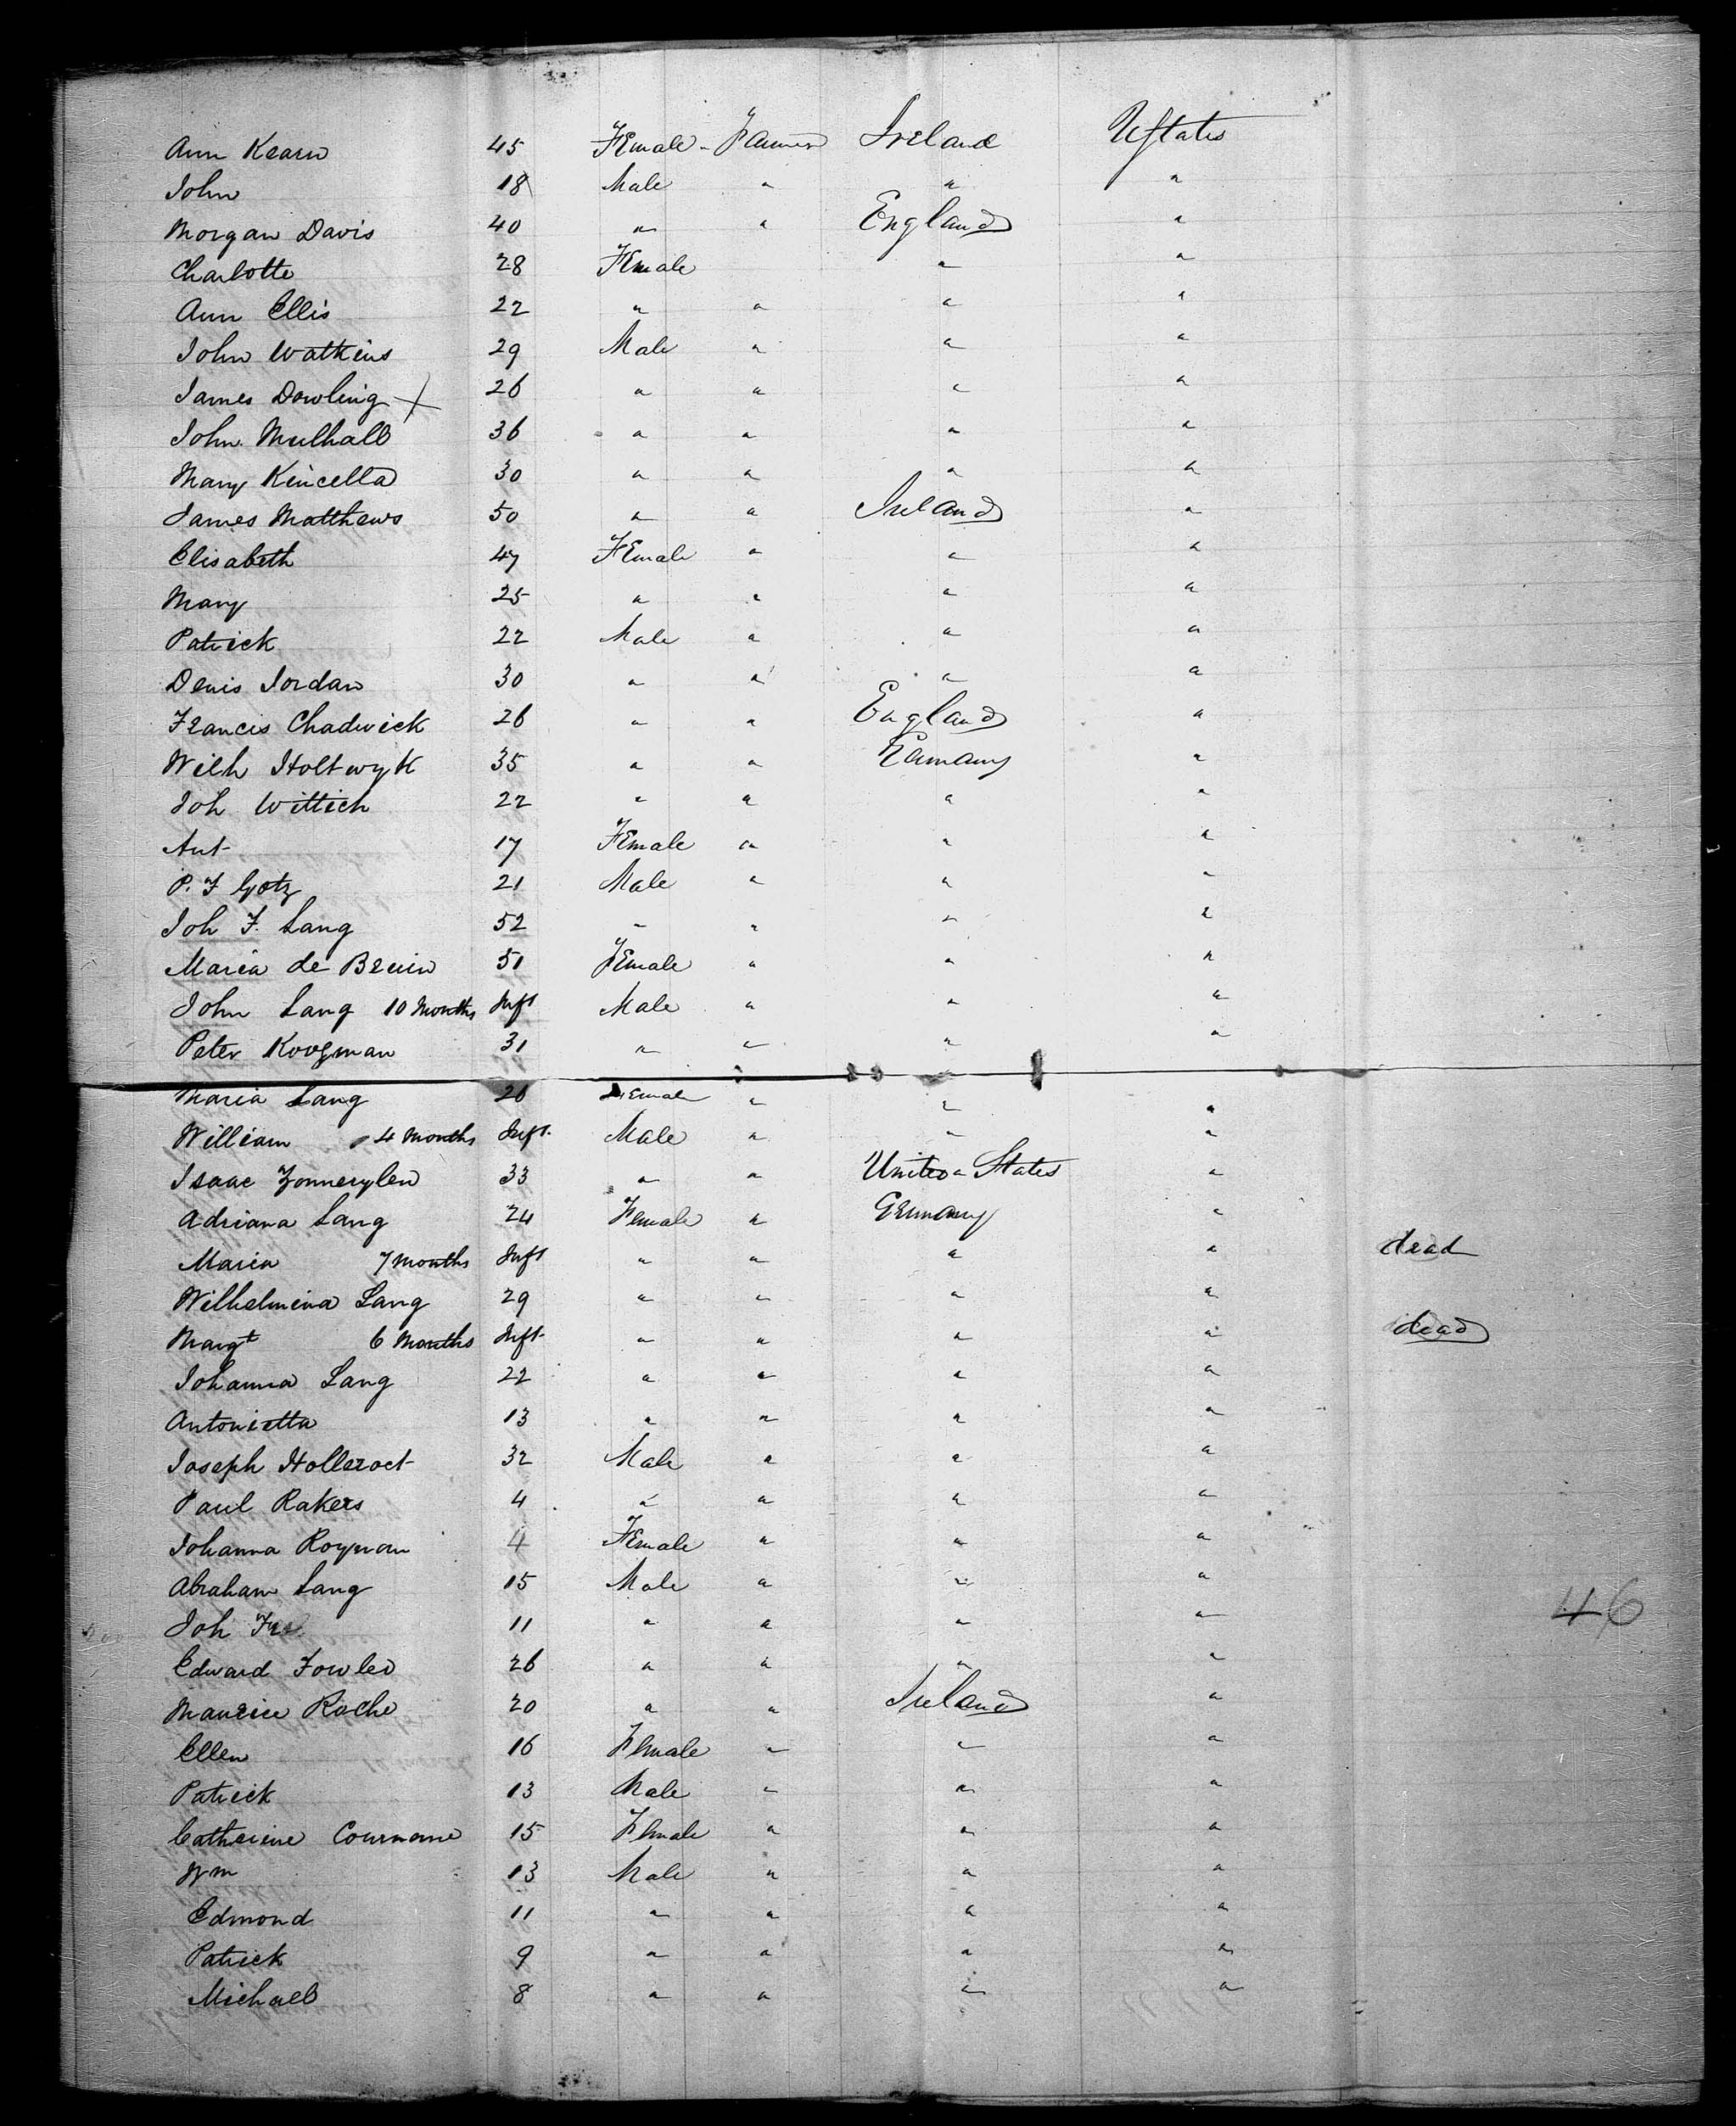 Ann Kearn 45 Female - Farmer Ireland UStates
John 18 Male " " "
Morgan Davis 40 " " England "
Charlotte 28 Female " "
Ann Ellis 22 " " " "
John Watkins 29 Male " " "
James Dowling X 26 " " " "
John Mulhall 36 " " " "
Mary Kincella 30 " " " "
James Matthews 50 " " Ireland "
Elisabeth 47 Female " " "
Mary 25 " " " "
Patrick 22 Male " " "
Denis Jordan 30 " " " "
Francis Chadwick 26 " " England "
Wilh Holtwyk 35 " " "
Joh Wittich 22 " " " "
Ant 17 Female " " "
P. F Gotz 21 Male " " "
Joh F. Lang 52 " " " "
Maria de Bruin 51 Female " " "
John Lang 10 Months Inft Male " " "
Peter Koogman 31 " " " "
Maria Lang 26 Female " " "
William 4 Months Inft Male " " "
Isaac 33 " " United States "
Adriana Lang 24 Female " Germany "
Maria 7 months Inft " " " " dead
Wilhelmina Lang 29 " " " "
Margt 6 Months Inft " " " " dead
Johanna Lang 22 " " " "
Antonietta 13 " " " "
Joseph Holleroet 32 Male " " "
Paul Rakers 4 " " " "
Johanna 4 Female " " "
Abraham Lang 15 Male " " "
Joh 11 " " " "
46
Edward Fowler 26 " " " "
Maurice Roche 20 " " Ireland "
Ellen 16 Female " " "
Patrick 13 Male " " "
Catherine Cournane 15 Female " " "
Wm 13 Male " " "
Edmond 11 " " " "
Patrick 9 " " " "
Michael 8 " " " "